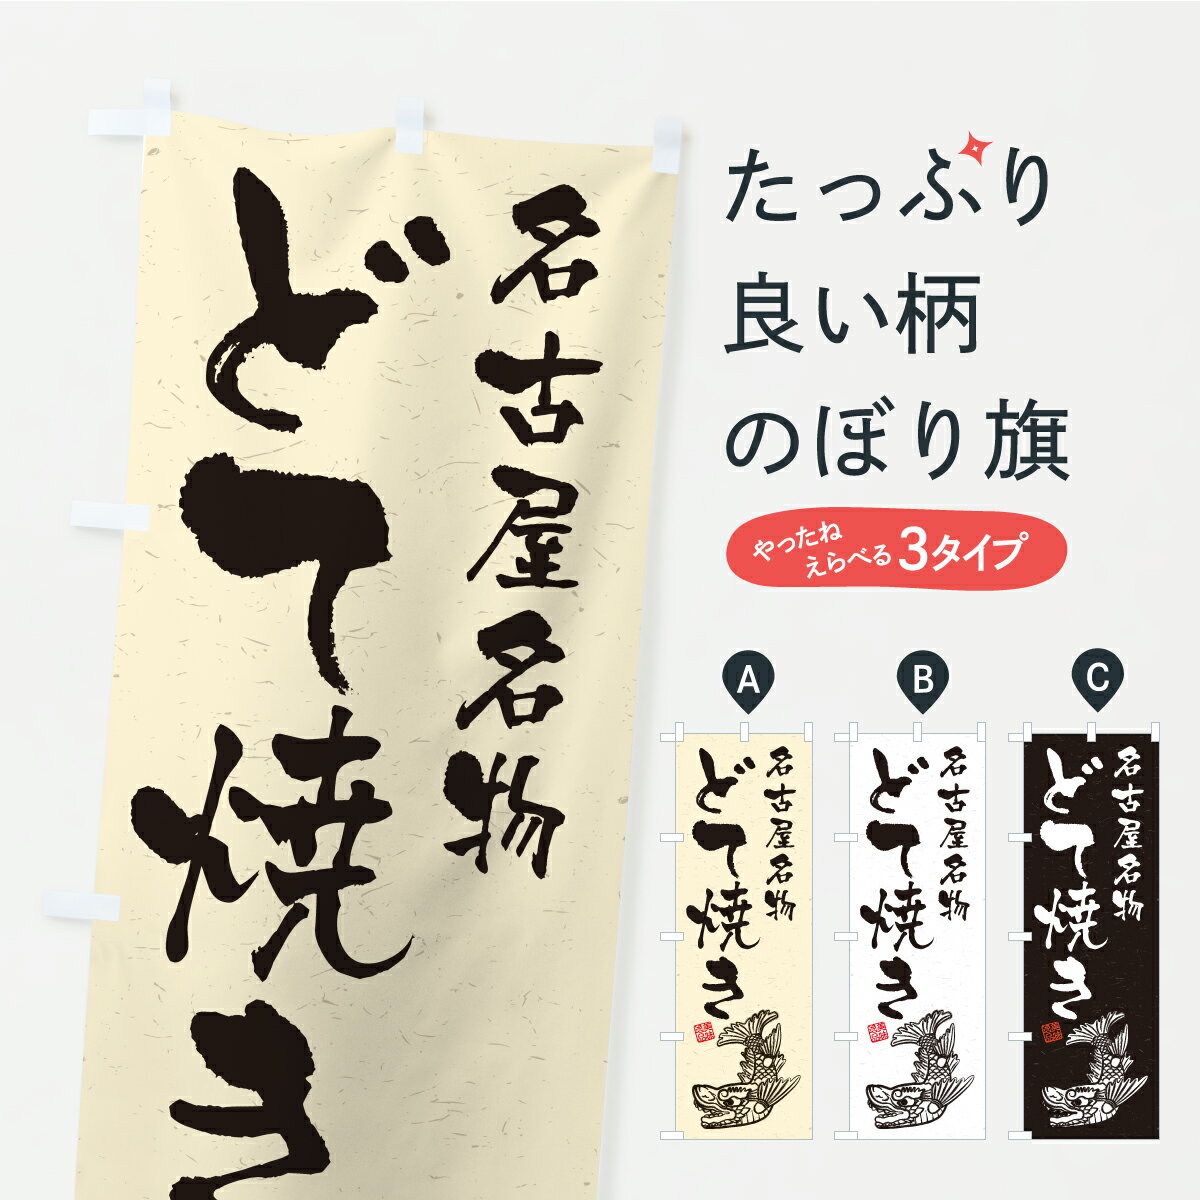 名古屋名物
どて焼き
たっぷり
良い柄
のぼり旗
やったね
えらべる
3タイプ
A
B
C
名古屋名物
どて焼き
名古屋名物
どて焼き
名古屋名物
どて焼き